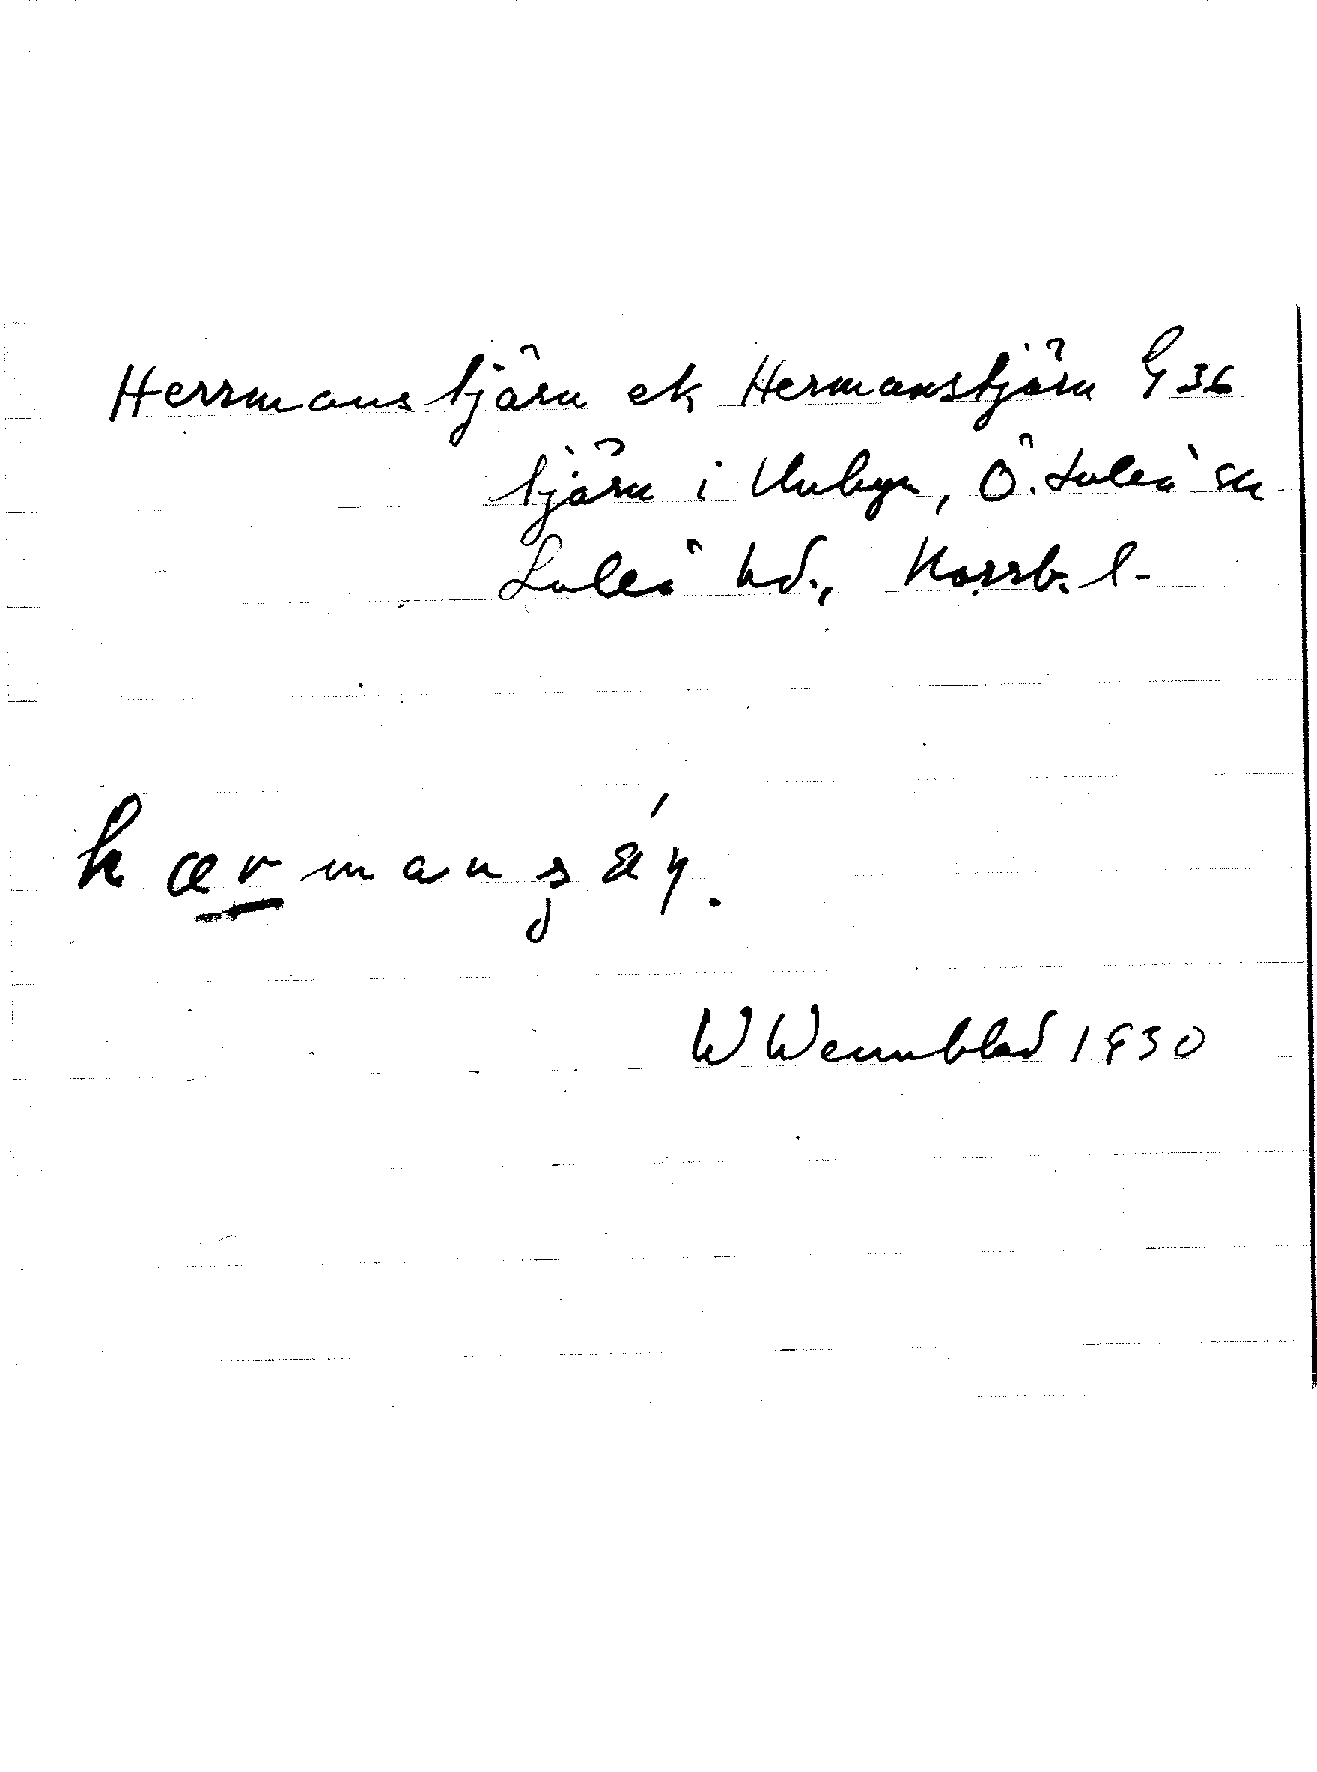 Herrmanstjärn ek Hermanstjärn G 36
tjärn i Unbyn, Ö. Luleå sn
Luleå hd., Norrb. l.
W Wennblad 1930